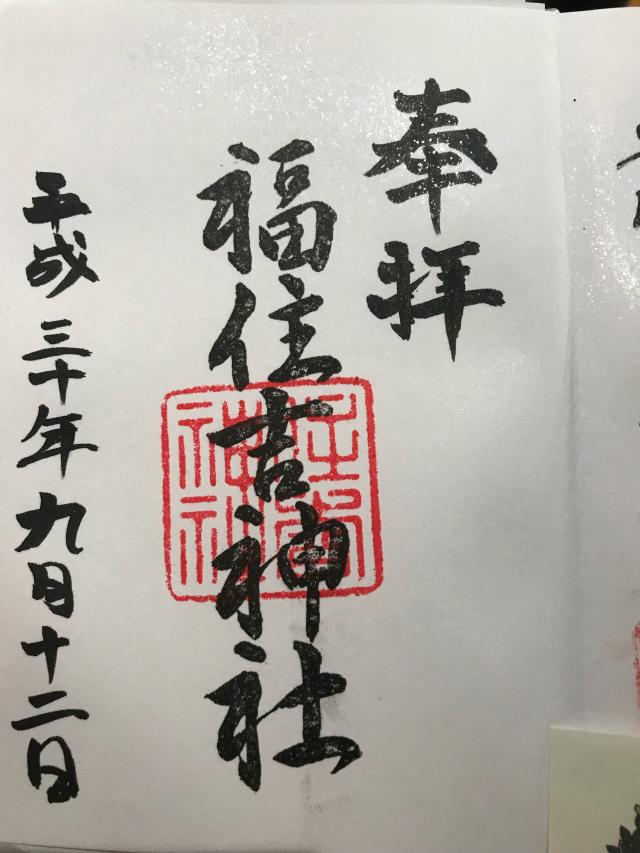 奉拝
福住吉神社
平成三十年九月十二日